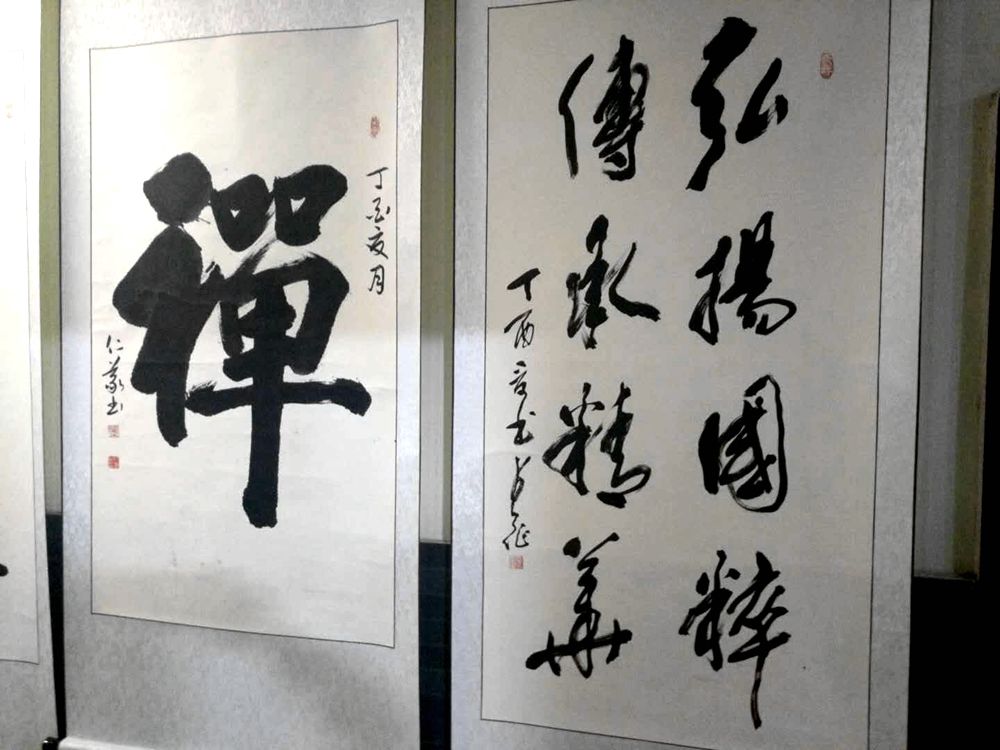 弘揚國粹
傳承精華
丁酉
禪
丁酉夏月
仁義書